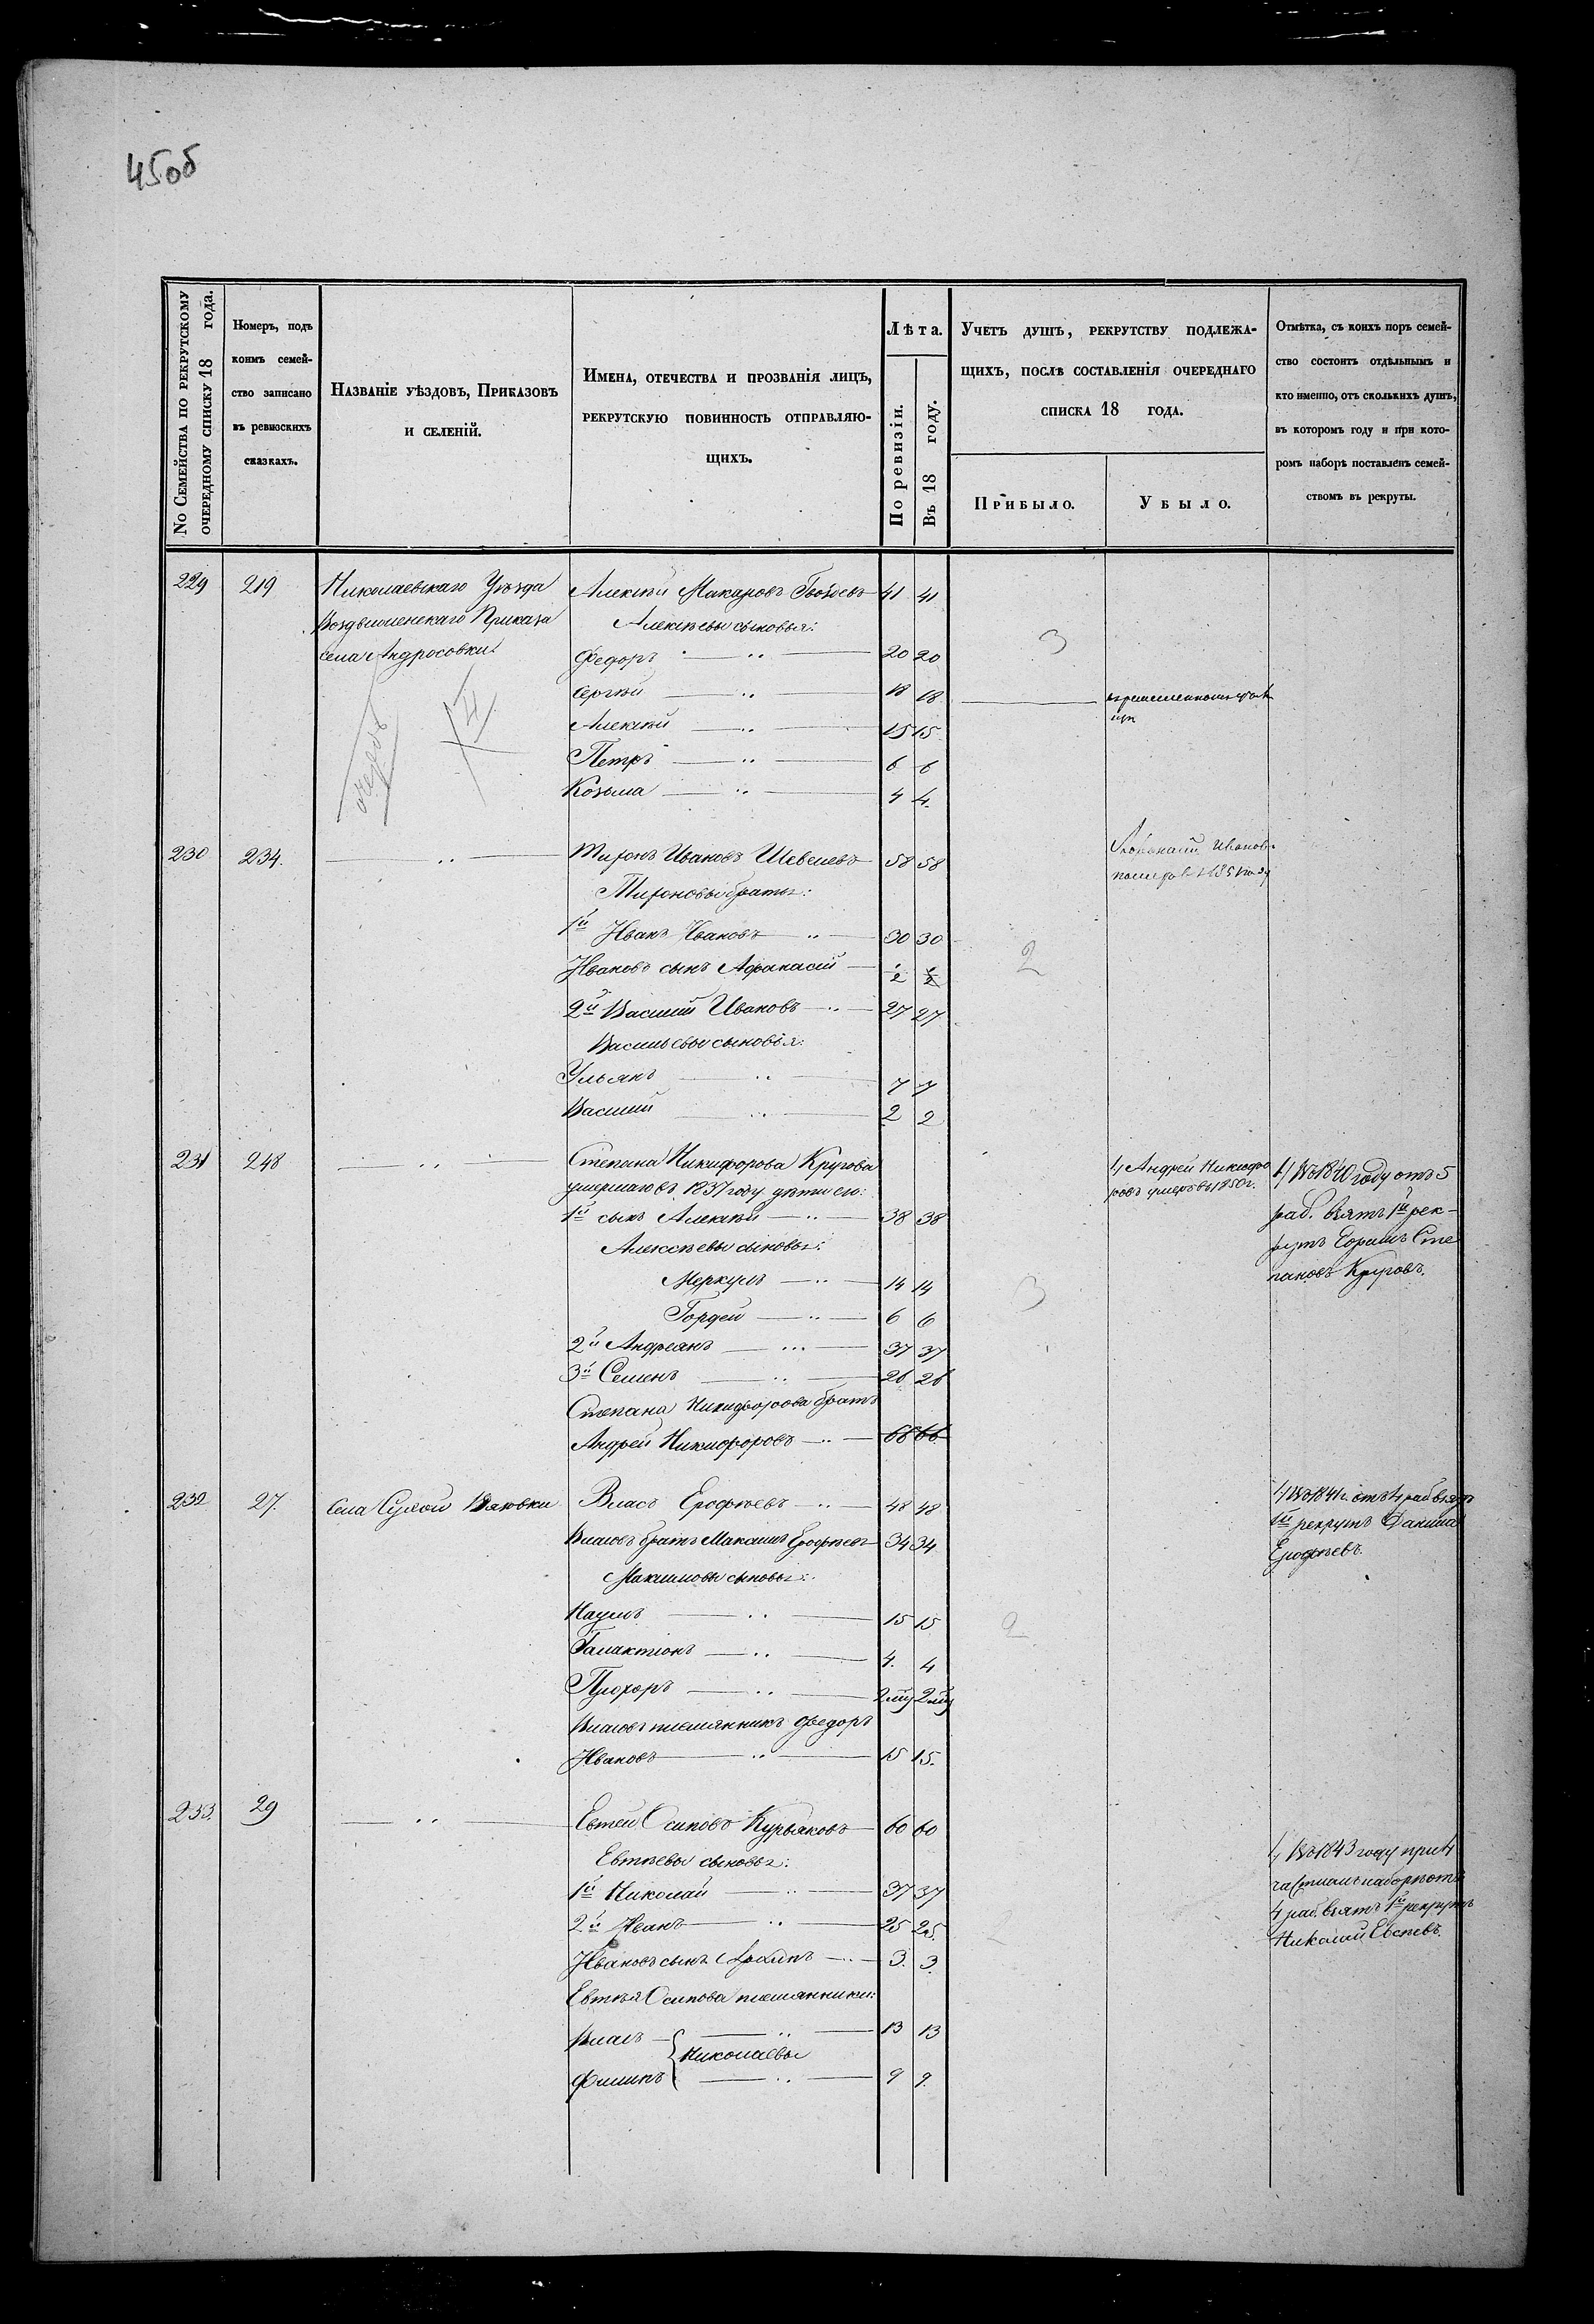 45об
No Семейства по рекрутскому
очередному списку 18 года.
Номеръ, подъ
коимъ семей-
ство записано
въ ревизскихъ
сказкахъ.
Названіе уѣздовъ, Приказовъ
и селеній.
Имена, отечества и прозванія лицъ,
рекрутскую повинность отправляю-
щихъ.
Лѣта.
По ревизіи.
Въ 18 году.
Учетъ душъ, рекрутству подлежа-
щихъ, послѣ составленія очереднаго
списка 18 года.
Прибыло.
Убыло.
Отмѣтка, съ коихъ поръ семей-
ство состоитъ отдѣльнымъ и
кто именно, отъ сколькихъ душъ,
въ которомъ году и при кото-
ромъ наборѣ поставленъ семей-
ствомъ въ рекруты.
229 219 Николаевскаго Уѣзда Алексѣй Макаровъ Гвоздевъ 41 41
Воздвиженскаго Приказа Алексѣевы сыновья:
села Андросовки. Федоръ 20 20 3
Сергѣй 18 18
Алексѣй 15 15
Петръ 6 6
очередь
Козьма 4 4.
230 234. Миронъ Ивановъ Шевелевъ 58 58
Мироновы братья:
1й Иванъ Ивановъ 30 30
Ивановъ сынъ Афанасій 1/2 1/2 2
2й Василій Ивановъ 27 27
Васильевы сыновья:
Ульянъ 7 7
Василій 2 2
231 248 Степана Никифорова Кругова
умершаго въ 1837 году дѣти его:
1й сынъ Алексѣй 38 38
Алексѣевы сыновья:
Меркулъ 14 14
Гордей 6 6 3
2й Андреянъ 37 37
3й Семенъ 26 26
Степана Никифорова братъ
Андрей Никифоровъ 68 66
Андрей Никифо
ровъ умеръ въ 1850 г.
Въ 1840 году отъ 5
раб. взятъ 1й рек-
рутъ Сте
пановъ Круговъ.
232 27. Села Сухой Вязовки Власъ Ерофѣевъ 48 48
Власовъ братъ Максимъ Ерофѣевъ 34 34
Максимовы сыновья:
Наумъ 15 15 2
Галактіонъ 4. 4
Прохоръ
Власовъ племянникъ Федоръ
Ивановъ 15 15.
Въ 1841 г. отъ 4 раб взятъ
1й рекрутъ Данила
Ерофѣевъ.
233. 29 Евтей Осиповъ Курьяковъ 60 60
Евтѣевы сыновья:
1й Николай 37 37
2й Иванъ 25 25.
Ивановъ сынъ 3. 3.
Евтѣя Осипова племянники:
Власъ 13 13
Николаевы
Филипъ 9 9.
Въ 1843 году при 4
частномъ наборѣ отъ
4 раб. взятъ 1й рекрутъ
Николай